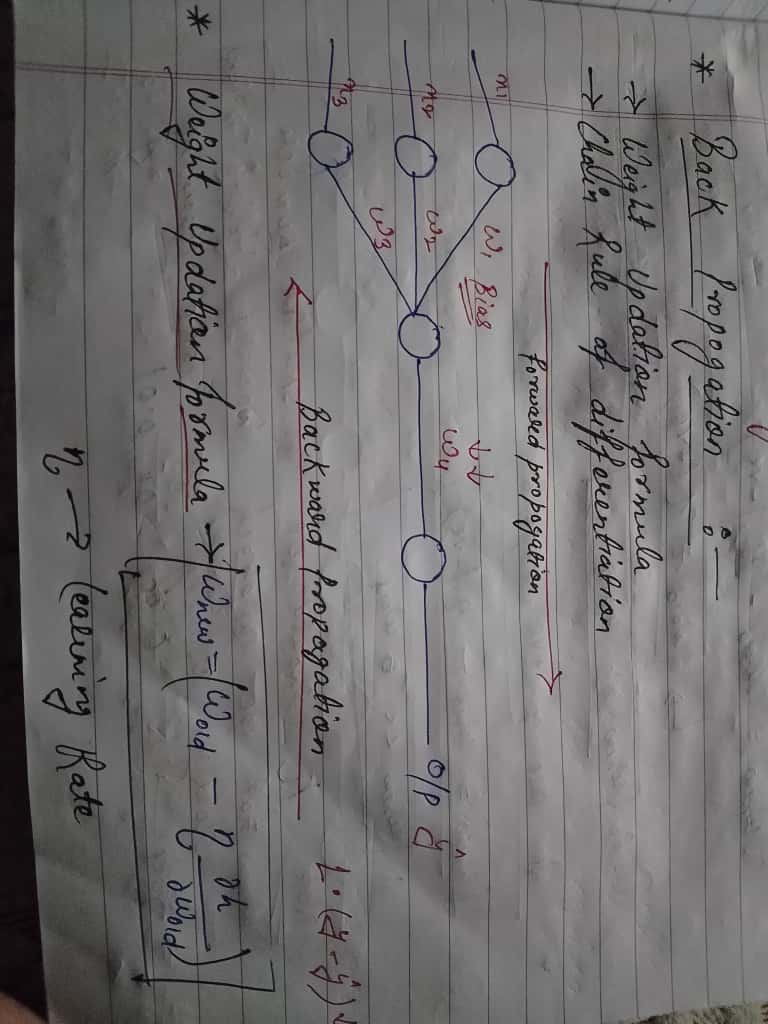 * Back Propogation :—
→ Weight Updation formula
→ Chain Rule of differentiation
forward propogation
x1
w1 Bias
w4
x2 w2
O/P ŷ
w3
x3
L. (y - ŷ) ↓
Backward Propagation
* Weight Updation formula → [Wnew = (Wold − η ∂h/∂Wold)]
η → Learining Rate